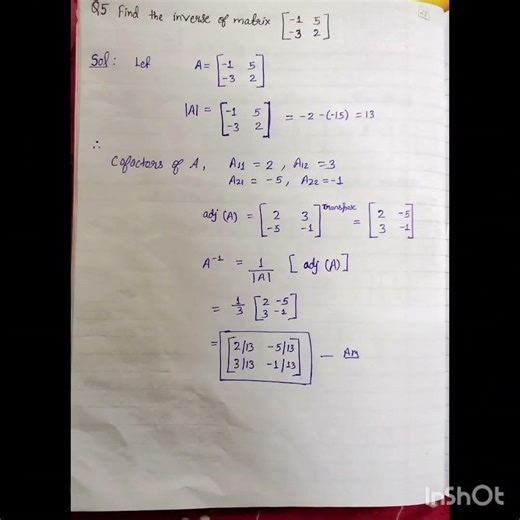 Q5 Find the inverse of matrix [-1 5
-3 2]
Sol: Let A = [-1 5
-3 2]
|A| = [-1 5
-3 2] = -2 -(-15) = 13
∴
Cofactors of A, A11 = 2, A12 = 3
A21 = -5, A22 = -1
adj (A) = [2 3
-5 -1] Transpose = [2 -5
3 -1]
A⁻¹ = 1/|A| [adj (A)]
= 1/3 [2 -5
3 -1]
= [2/13 -5/13
3/13 -1/13] — Ans
InShOt